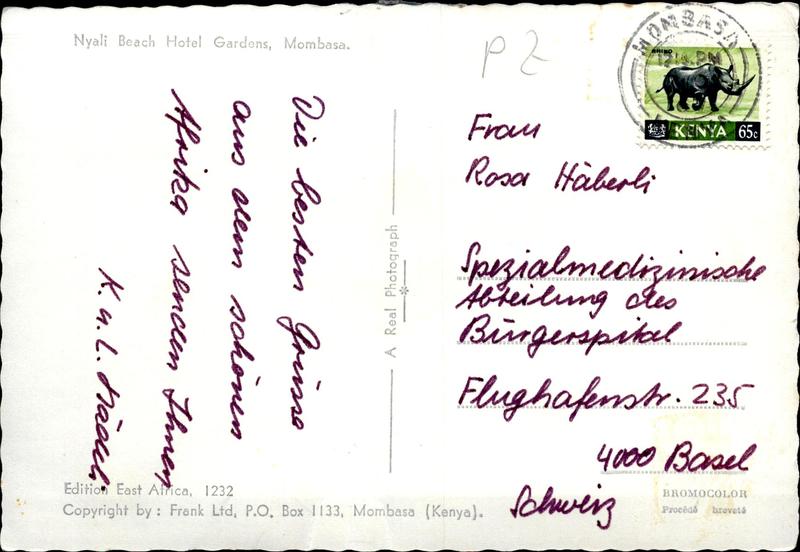 Nyali Beach Hotel Gardens, Mombasa.
Die besten Grüsse
aus dem schönen
Afrika senden Ihnen
K. u. L.
A Real Photograph
Edition East Africa, 1232
Copyright by: Frank Ltd, P.O. Box 1133, Mombasa (Kenya).
P 2
MOMBASA
PM
RHINO
KENYA 65c
Frau
Rosa Häberli
Spezialmedizinische
Abteilung des
Bürgerspital
Flughafenstr. 235
4000 Basel
Schweiz
BROMOCOLOR
Procédé breveté